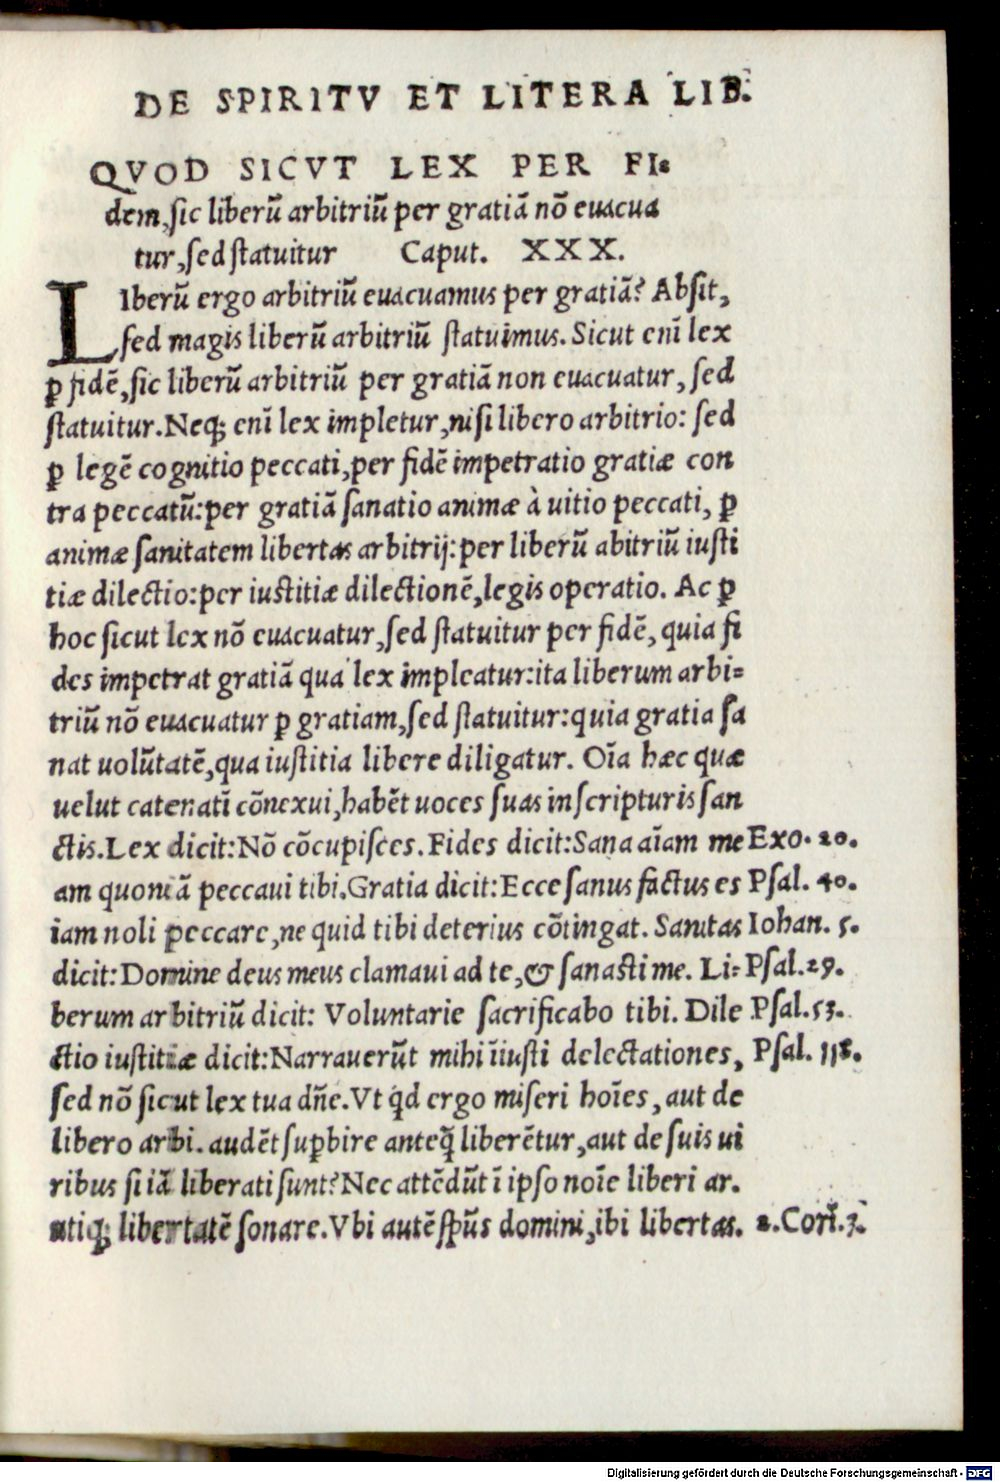 DE SPIRITV ET LITERA LIB.
QVOD SICVT LEX PER FI=
dem, sic liberũ arbitriũ per gratiã nõ euacua
tur, sed statuitur Caput. XXX.
LIberũ ergo arbitriũ euacuamus per gratiã? Absit,
sed magis liberũ arbitriũ statuimus. Sicut eni̅ lex
ꝑ fidẽ, sic liberũ arbitriũ per gratiã non euacuatur, sed
statuitur. Neqꝫ eni̅ lex impletur, nisi libero arbitrio: sed
ꝑ legẽ cognitio peccati, per fidẽ impetratio gratiæ con
tra peccatũ: per gratiã sanatio animæ à uitio peccati, ꝑ
animæ sanitatem libertas arbitrij: per liberũ abitriũ iusti
tiæ dilectio: per iustitiæ dilectionẽ, legis operatio. Ac ꝑ
hoc sicut lex nõ euacuatur, sed statuitur per fidẽ, quia fi
des impetrat gratiã qua lex impleatur: ita liberum arbi=
triũ nõ euacuatur ꝑ gratiam, sed statuitur: quia gratia sa
nat uolũtatẽ, qua iustitia libere diligatur. Oi̅a hæc quæ
uelut catenati̅ cõnexui, habẽt uoces suas in scripturis san
ctis. Lex dicit: Nõ cõcupisces. Fides dicit: Sana ai̅am me Exo. 20.
am quoniã peccaui tibi. Gratia dicit: Ecce sanus factus es Psal. 40.
iam noli peccare, ne quid tibi deterius cõtingat. Sanitas Iohan. 5.
dicit: Domine deus meus clamaui ad te, & sanasti me. Li= Psal. 29.
berum arbitriũ dicit: Voluntarie sacrificabo tibi. Dile Psal. 53.
ctio iustitiæ dicit: Narrauerũt mihi i̅iusti delectationes, Psal. 118.
sed nõ sicut lex tua dñe. Vt qͥd ergo miseri hoi̅es, aut de
libero arbi. audẽt suꝑbire anteq̃ liberẽtur, aut de suis ui
ribus si iã liberati sunt? Nec attẽdũt i̅ ipso noi̅e liberi ar.
utiqꝫ libertatẽ sonare. Vbi autẽ sp̃us domini, ibi libertas. 2. Cori̅. 3.
Digitalisierung gefördert durch die Deutsche Forschungsgemeinschaft - DFG